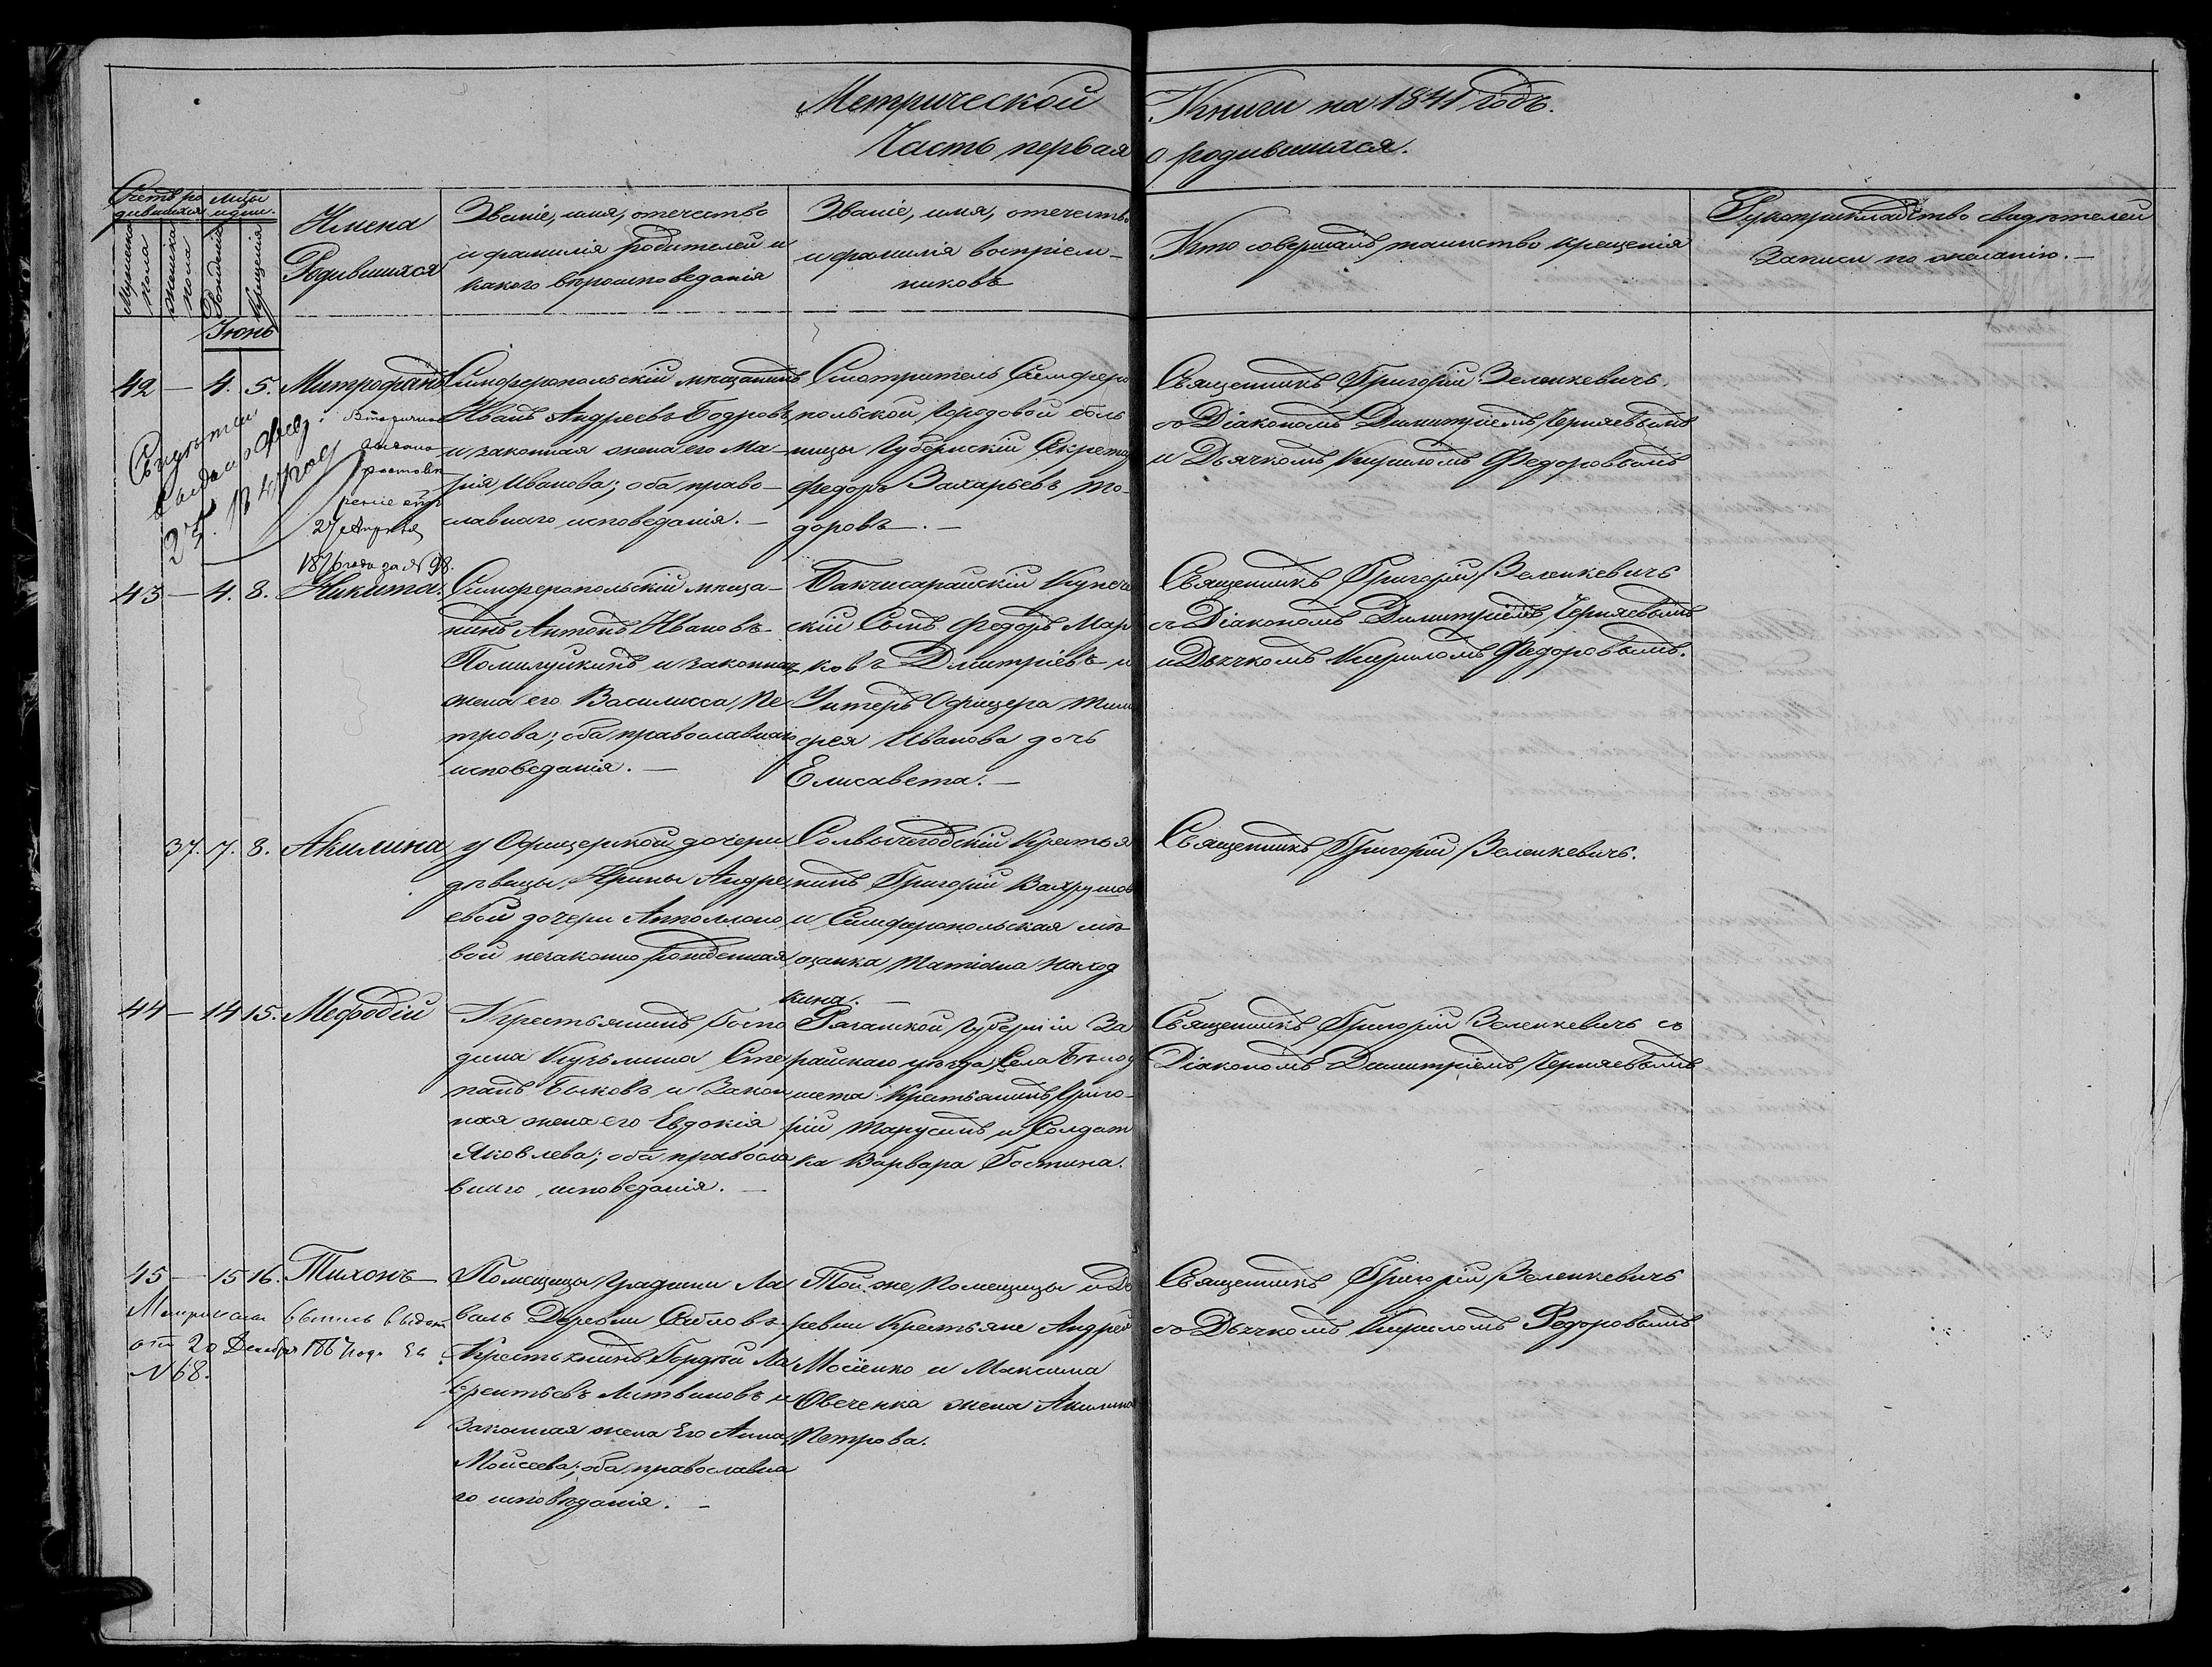 Метрической Книги на 1841 годъ.
Часть первая о родившихся.
Счетъ ро
дившихся
Мужеска
пола
Женска
пола
Рожденія
Крещенія
Имена
Родившихся
Званіе, имя, отечество
и фамилія родителей и
какого вѣроисповеданія
Званіе, имя, отечество
и фамилія воспріем-
никовъ
Кто совершалъ таинство крещенія
Рукоприкладство свидѣтелей
записи по желанію. —
Іюнь
42 — 4. 5. Митрофанъ
27 Апрѣля
1876 года за № 98.
Симферопольскій мѣщанинъ
Иванъ Андреевъ Бодровъ
и законная жена его Ма-
рія Иванова; оба право-
славнаго исповеданія. —
Смотритель Симферо
польской Городовой боль
ницы Губернскій Секретарь
Федоръ Захарьевъ То-
доровъ. —
Священникъ Григорій Зеленкевичъ
съ Діакономъ Димитріемъ Черняевымъ
и Дьячкомъ Кириломъ Федоровымъ
43 — 4. 8. Никита.
Симферопольскій мѣща-
нинъ Антонъ Ивановъ
Помилуйкинъ и законная
жена его Василисса Пе-
трова; оба православнаго
исповеданія. —
Бакчисарайскій Купече
скій Сынъ Федоръ Мар
ковъ Дмитріевъ и
Унтеръ Офицера Тимо
фея Иванова дочь
Елисавета. —
Священникъ Григорій Зеленкевичъ
съ Діакономъ Димитріемъ Черняевымъ
и Дьячкомъ Кириломъ Федоровымъ.
37. 7. 8. Акилина
у Офицерской дочери
дѣвицы Ирины Андре
евой дочери Апполлоно
вой незаконно рожденная
Сольвычегодскій Крестья
нинъ Григорій Вахрушов
и Симферопольская мѣ
щанка Татіана Наход
кина. —
Священникъ Григорій Зеленкевичъ.
44 — 14 15. Мефодій
Крестьянинъ Госпо
дина Кузьмина Сте
панъ Быковъ и Закон
ная жена его Евдокія
Яковлева; оба правосла
внаго исповеданія. —
Рязанской Губерніи За
райскаго уѣзда Села Бѣло
мета Крестьянинъ Григо-
рій Тарусинъ и Солдат
ка Варвара Гостина.
Священникъ Григорій Зеленкевичъ съ
Діакономъ Димитріемъ Черняевымъ
45 — 15 16. Тихонъ
Метрическая выпись выдан
отъ 20 Декабря 1867 года за
№ 68.
Помещицы Графини Ла
валь Деревни Саблов
Крестьянинъ Гордѣй Ла
врентьевъ Литвиновъ и
Законная жена Его Анна
Моисеева; оба православна
го исповѣданія. —
Той же Помещицы и Де
ревни Крестьяне Андрей
Мосіенко и Максима
Овеченка жена Акилина
Петрова.
Священникъ Григорій Зеленкевичъ
съ Дьячкомъ Кириломъ Федоровымъ